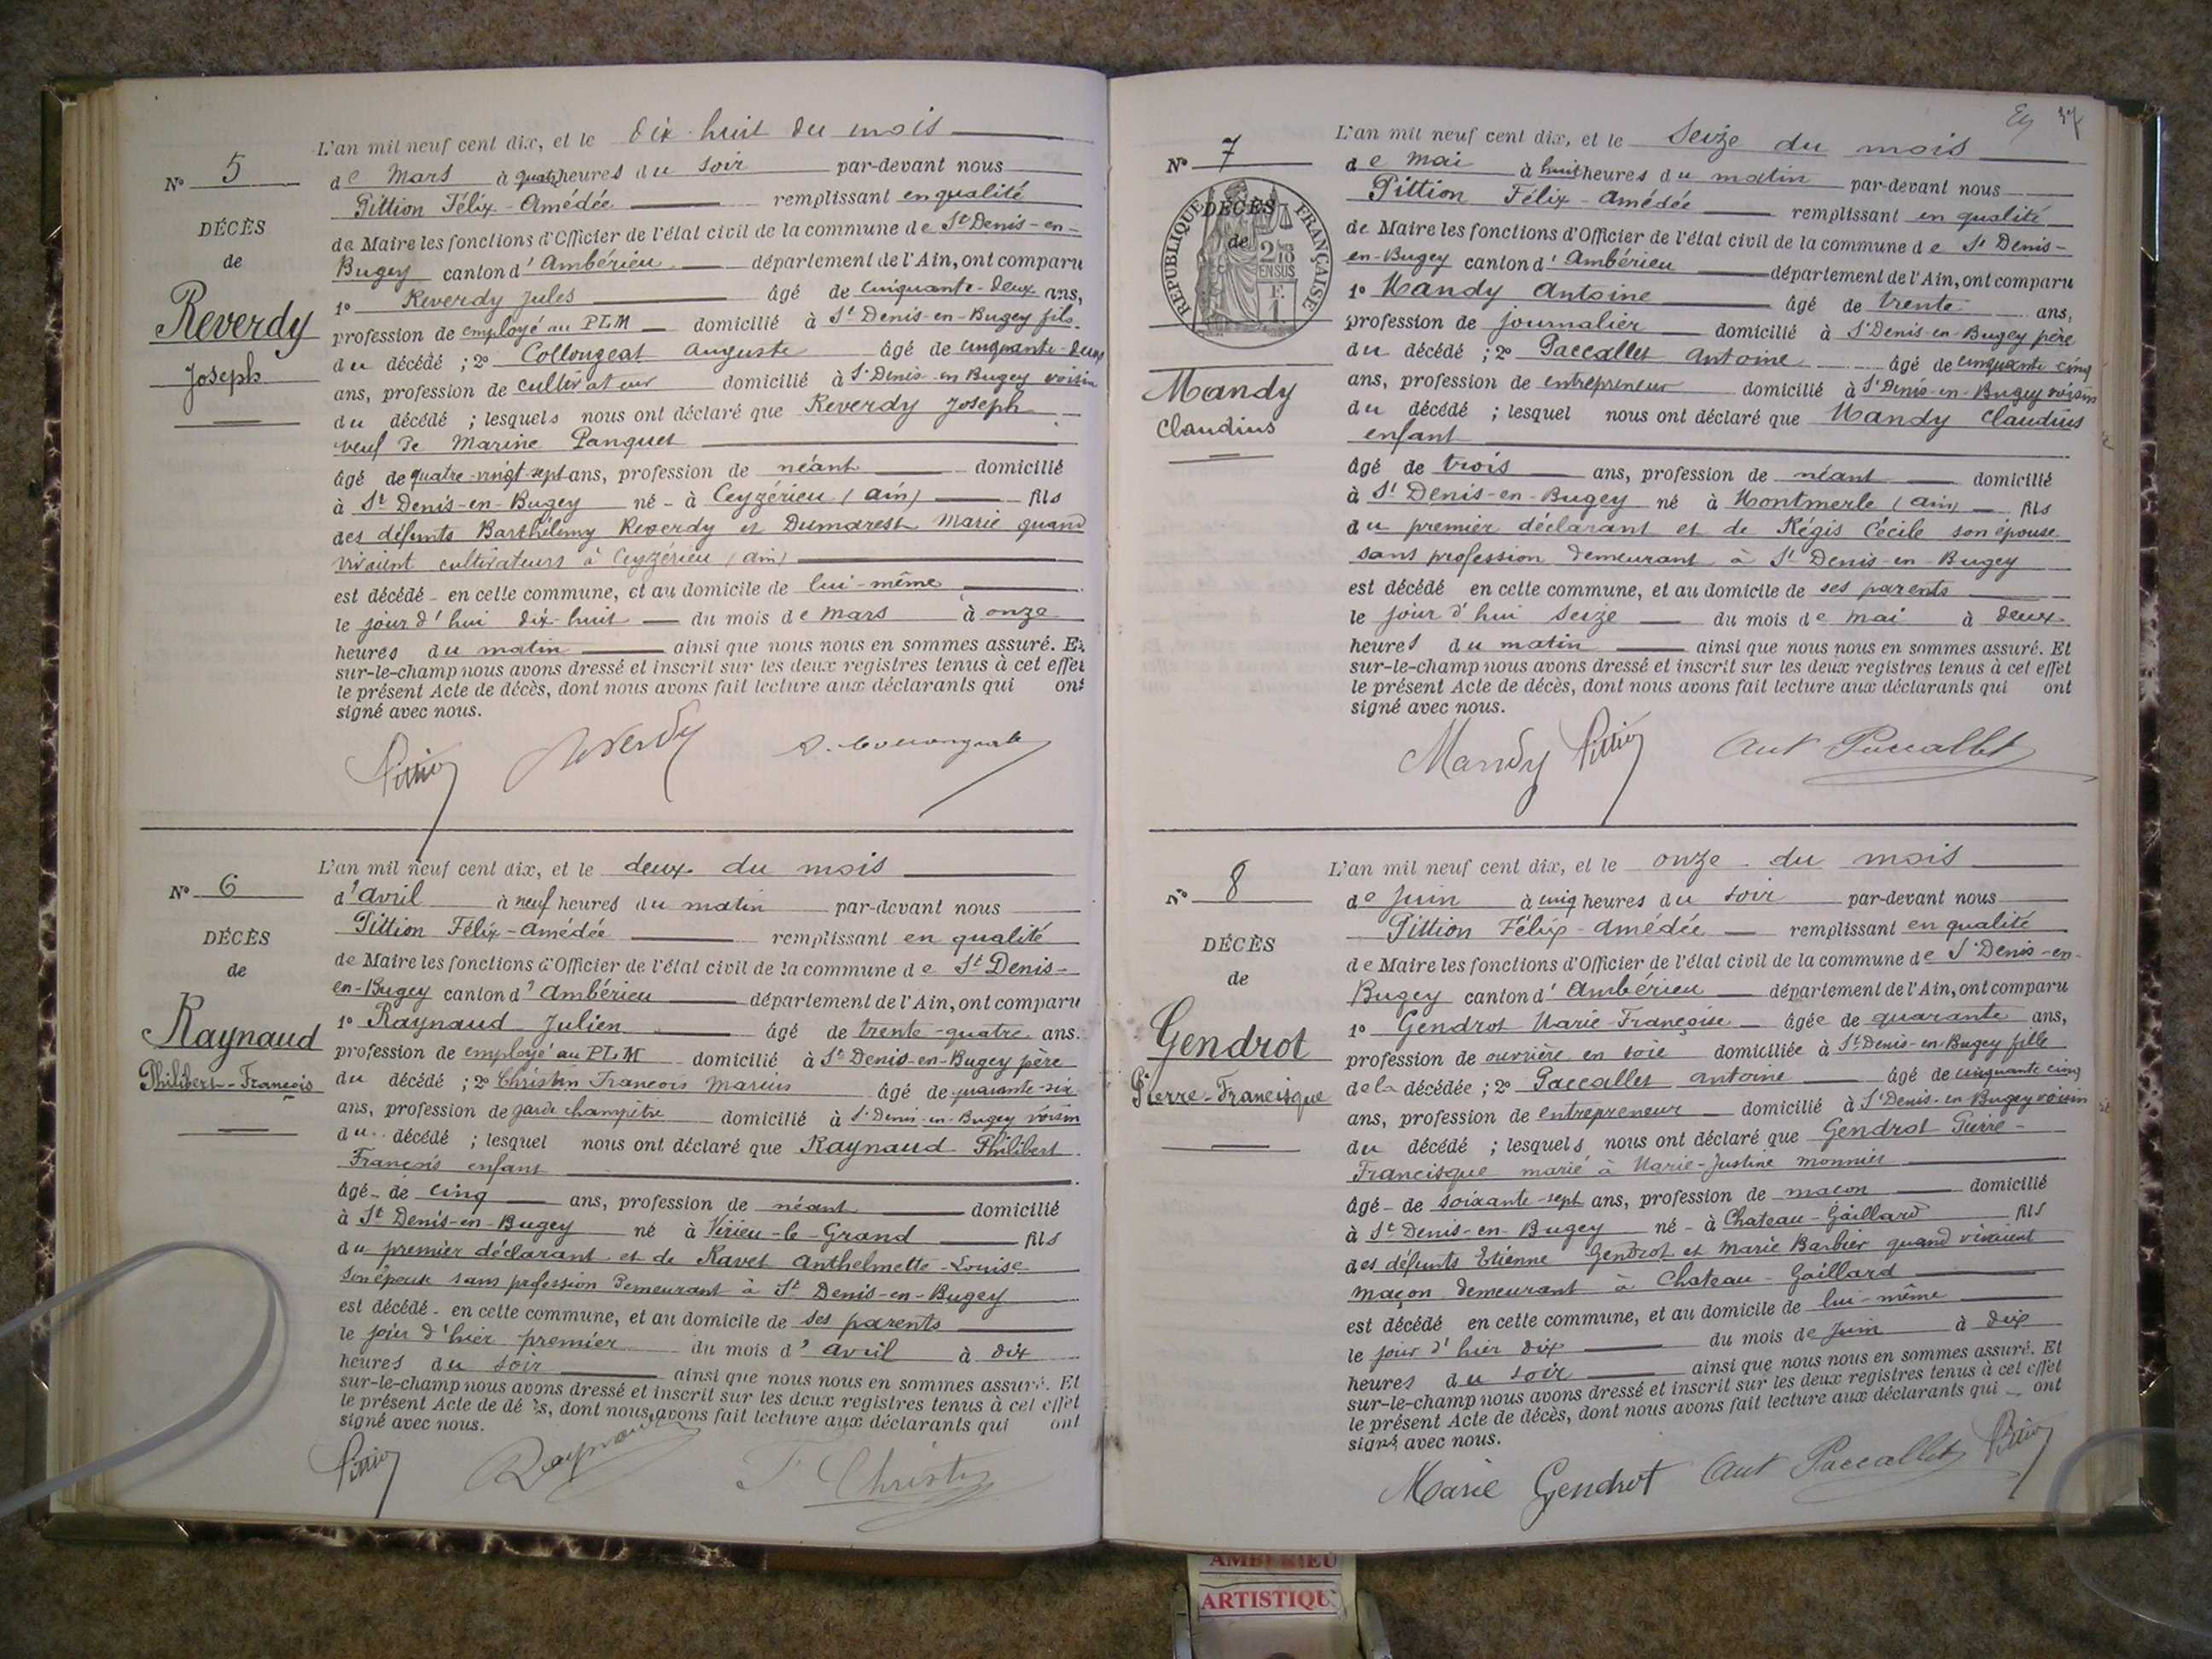 N° 5
DÉCÈS
de
Reverdy
Joseph
L'an mil neuf cent dix, et le dix-huit du mois
de Mars à quatre heures du soir par-devant nous
Pittion Félix-Amédée remplissant en qualité
de Maire les fonctions d'Officier de l'état civil de la commune de St Denis-en-
Bugey canton d'Ambérieu département de l'Ain, ont comparu
1° Reverdy Jules âgé de cinquante-deux ans,
profession de employé au PLM domicilié à St Denis-en-Bugey fils
du décédé ; 2° Collongeat Auguste âgé de cinquante-deux
ans, profession de cultivateur domicilié à St Denis-en-Bugey voisin
du décédé ; lesquels nous ont déclaré que Reverdy Joseph
veuf de Marine Panquet
âgé de quatre-vingt-sept ans, profession de néant domicilié
à St Denis-en-Bugey né - à Ceyzérieu (Ain) fils
des défunts Barthélemy Reverdy et Dumarest Marie quand
vivaient cultivateurs à Ceyzérieu (Ain)
est décédé - en cette commune, et au domicile de lui-même
le jour d'hui dix-huit du mois de Mars à onze
heures du matin ainsi que nous nous en sommes assuré. Et
sur-le-champ nous avons dressé et inscrit sur les deux registres tenus à cet effet
le présent Acte de décès, dont nous avons fait lecture aux déclarants qui ont
signé avec nous.
Pittion Reverdy A. Collongeat
N° 6
DÉCÈS
de
Raynaud
Philibert-François
L'an mil neuf cent dix, et le deux du mois
d'avril à neuf heures du matin par-devant nous
Pittion Félix-Amédée remplissant en qualité
de Maire les fonctions d'Officier de l'état civil de la commune de St Denis-
en-Bugey canton d'Ambérieu département de l'Ain, ont comparu
1° Raynaud Julien âgé de trente-quatre ans.
profession de employé au PLM domicilié à St Denis-en-Bugey père
du décédé ; 2° Christin François Marius âgé de quarante-six
ans, profession de garde champêtre domicilié à St Denis-en-Bugey voisin
du décédé ; lesquel nous ont déclaré que Raynaud Philibert
François enfant
âgé - de cinq ans, profession de néant domicilié
à St Denis-en-Bugey né à Virieu-le-Grand fils
du premier déclarant et de Ravet Anthelmette-Louise
son épouse sans profession demeurant à St Denis-en-Bugey
est décédé - en cette commune, et au domicile de ses parents
le jour d'hier premier du mois d'avril à dix
heures du soir ainsi que nous nous en sommes assuré. Et
sur-le-champ nous avons dressé et inscrit sur les deux registres tenus à cet effet
le présent Acte de décès, dont nous avons fait lecture aux déclarants qui ont
signé avec nous.
Pittion Raynaud F Christin
37
N° 7
RÉPUBLIQUE FRANÇAISE
2/10 EN SUS
F. 1
DÉCÈS
de
Mandy
Claudius
L'an mil neuf cent dix, et le Seize du mois
de mai à huit heures du matin par-devant nous
Pittion Félix-Amédée remplissant en qualité
de Maire les fonctions d'Officier de l'état civil de la commune de St Denis-
en-Bugey canton d'Ambérieu département de l'Ain, ont comparu
1° Mandy Antoine âgé de trente ans,
profession de journalier domicilié à St Denis-en-Bugey père
du décédé ; 2° Paccallet Antoine âgé de cinquante cinq
ans, profession de entrepreneur domicilié à St Denis-en-Bugey voisin
du décédé ; lesquel nous ont déclaré que Mandy Claudius
enfant
âgé de trois ans, profession de néant domicilié
à St Denis-en-Bugey né à Montmerle (Ain) fils
du premier déclarant et de Régis Cécile son épouse
sans profession demeurant à St Denis-en-Bugey
est décédé en cette commune, et au domicile de ses parents
le jour d'hui seize du mois de mai à deux
heures du matin ainsi que nous nous en sommes assuré. Et
sur-le-champ nous avons dressé et inscrit sur les deux registres tenus à cet effet
le présent Acte de décès, dont nous avons fait lecture aux déclarants qui ont
signé avec nous.
Mandy Pittion Ant Paccallet
N° 8
DÉCÈS
de
Gendrot
Pierre-Francisque
L'an mil neuf cent dix, et le onze du mois
de Juin à cinq heures du soir par-devant nous
Pittion Félix-Amédée remplissant en qualité
de Maire les fonctions d'Officier de l'état civil de la commune de St Denis-en-
Bugey canton d'Ambérieu département de l'Ain, ont comparu
1° Gendrot Marie-Françoise âgée de quarante ans,
profession de ouvrière en soie domiciliée à St Denis-en-Bugey fille
de la décédée ; 2° Paccallet Antoine âgé de cinquante cinq
ans, profession de entrepreneur domicilié à St Denis-en-Bugey voisin
du décédé ; lesquels nous ont déclaré que Gendrot Pierre-
Francisque marié à Marie-Justine Monnier
âgé - de soixante-sept ans, profession de maçon domicilié
à St Denis-en-Bugey né - à Chateau-Gaillard fils
des défunts Etienne Gendrot et Marie Barbier quand vivaient
maçon demeurant à Chateau-Gaillard
est décédé en cette commune, et au domicile de lui-même
le jour d'hier dix du mois de Juin à dix
heures du soir ainsi que nous nous en sommes assuré. Et
sur-le-champ nous avons dressé et inscrit sur les deux registres tenus à cet effet
le présent Acte de décès, dont nous avons fait lecture aux déclarants qui - ont
signé avec nous.
Marie Gendrot Ant Paccallet Pittion
AMBERIEU
ARTISTIQU